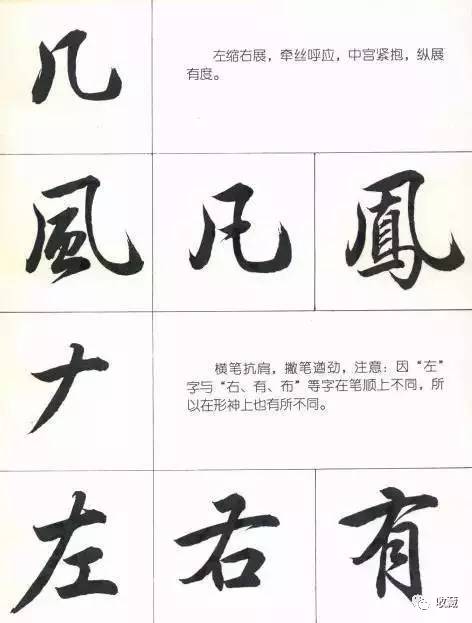 几
左缩右展，牵丝呼应，中宫紧抱，纵展
有度。
風 凡 鳳
𠂇
横笔抗肩，撇笔遒劲，注意：因“左”
字与“右、有、布”等字在笔顺上不同，所
以在形神上也有所不同。
左 右 有
收藏